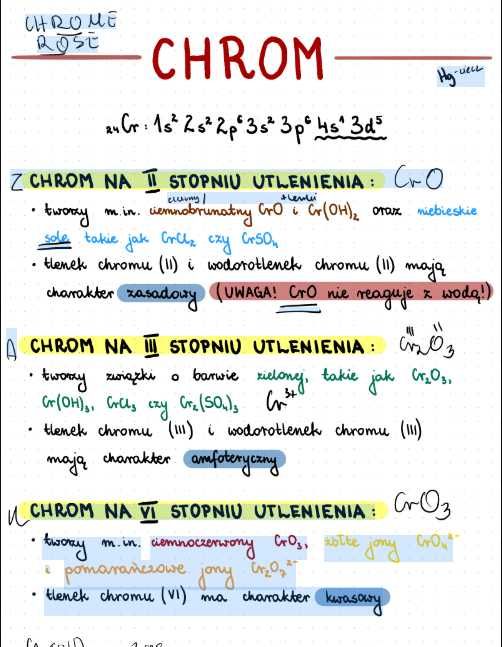 CHROME
ROSE
CHROM
Hg-ciecz
₂₄Cr: 1s² 2s² 2p⁶ 3s² 3p⁶ 4s¹ 3d⁵
Z CHROM NA II STOPNIU UTLENIENIA: CrO
ciemny/
• tworzy m.in. ciemnobrunatny CrO i Cr(OH)₂ oraz niebieskie
sole takie jak CrCl₂ czy CrSO₄
• tlenek chromu (II) i wodorotlenek chromu (II) mają
charakter zasadowy (UWAGA! CrO nie reaguje z wodą!)
A CHROM NA III STOPNIU UTLENIENIA: Cr₂O₃
III II
• tworzy związki o barwie zielonej, takie jak Cr₂O₃,
Cr(OH)₃, CrCl₃ czy Cr₂(SO₄)₃ Cr³⁺
• tlenek chromu (III) i wodorotlenek chromu (III)
mają charakter amfoteryczny
K CHROM NA VI STOPNIU UTLENIENIA: CrO₃
• tworzy m.in. ciemnoczerwony CrO₃, żółte jony CrO₄²⁻
i pomarańczowe jony Cr₂O₇²⁻
• tlenek chromu (VI) ma charakter kwasowy